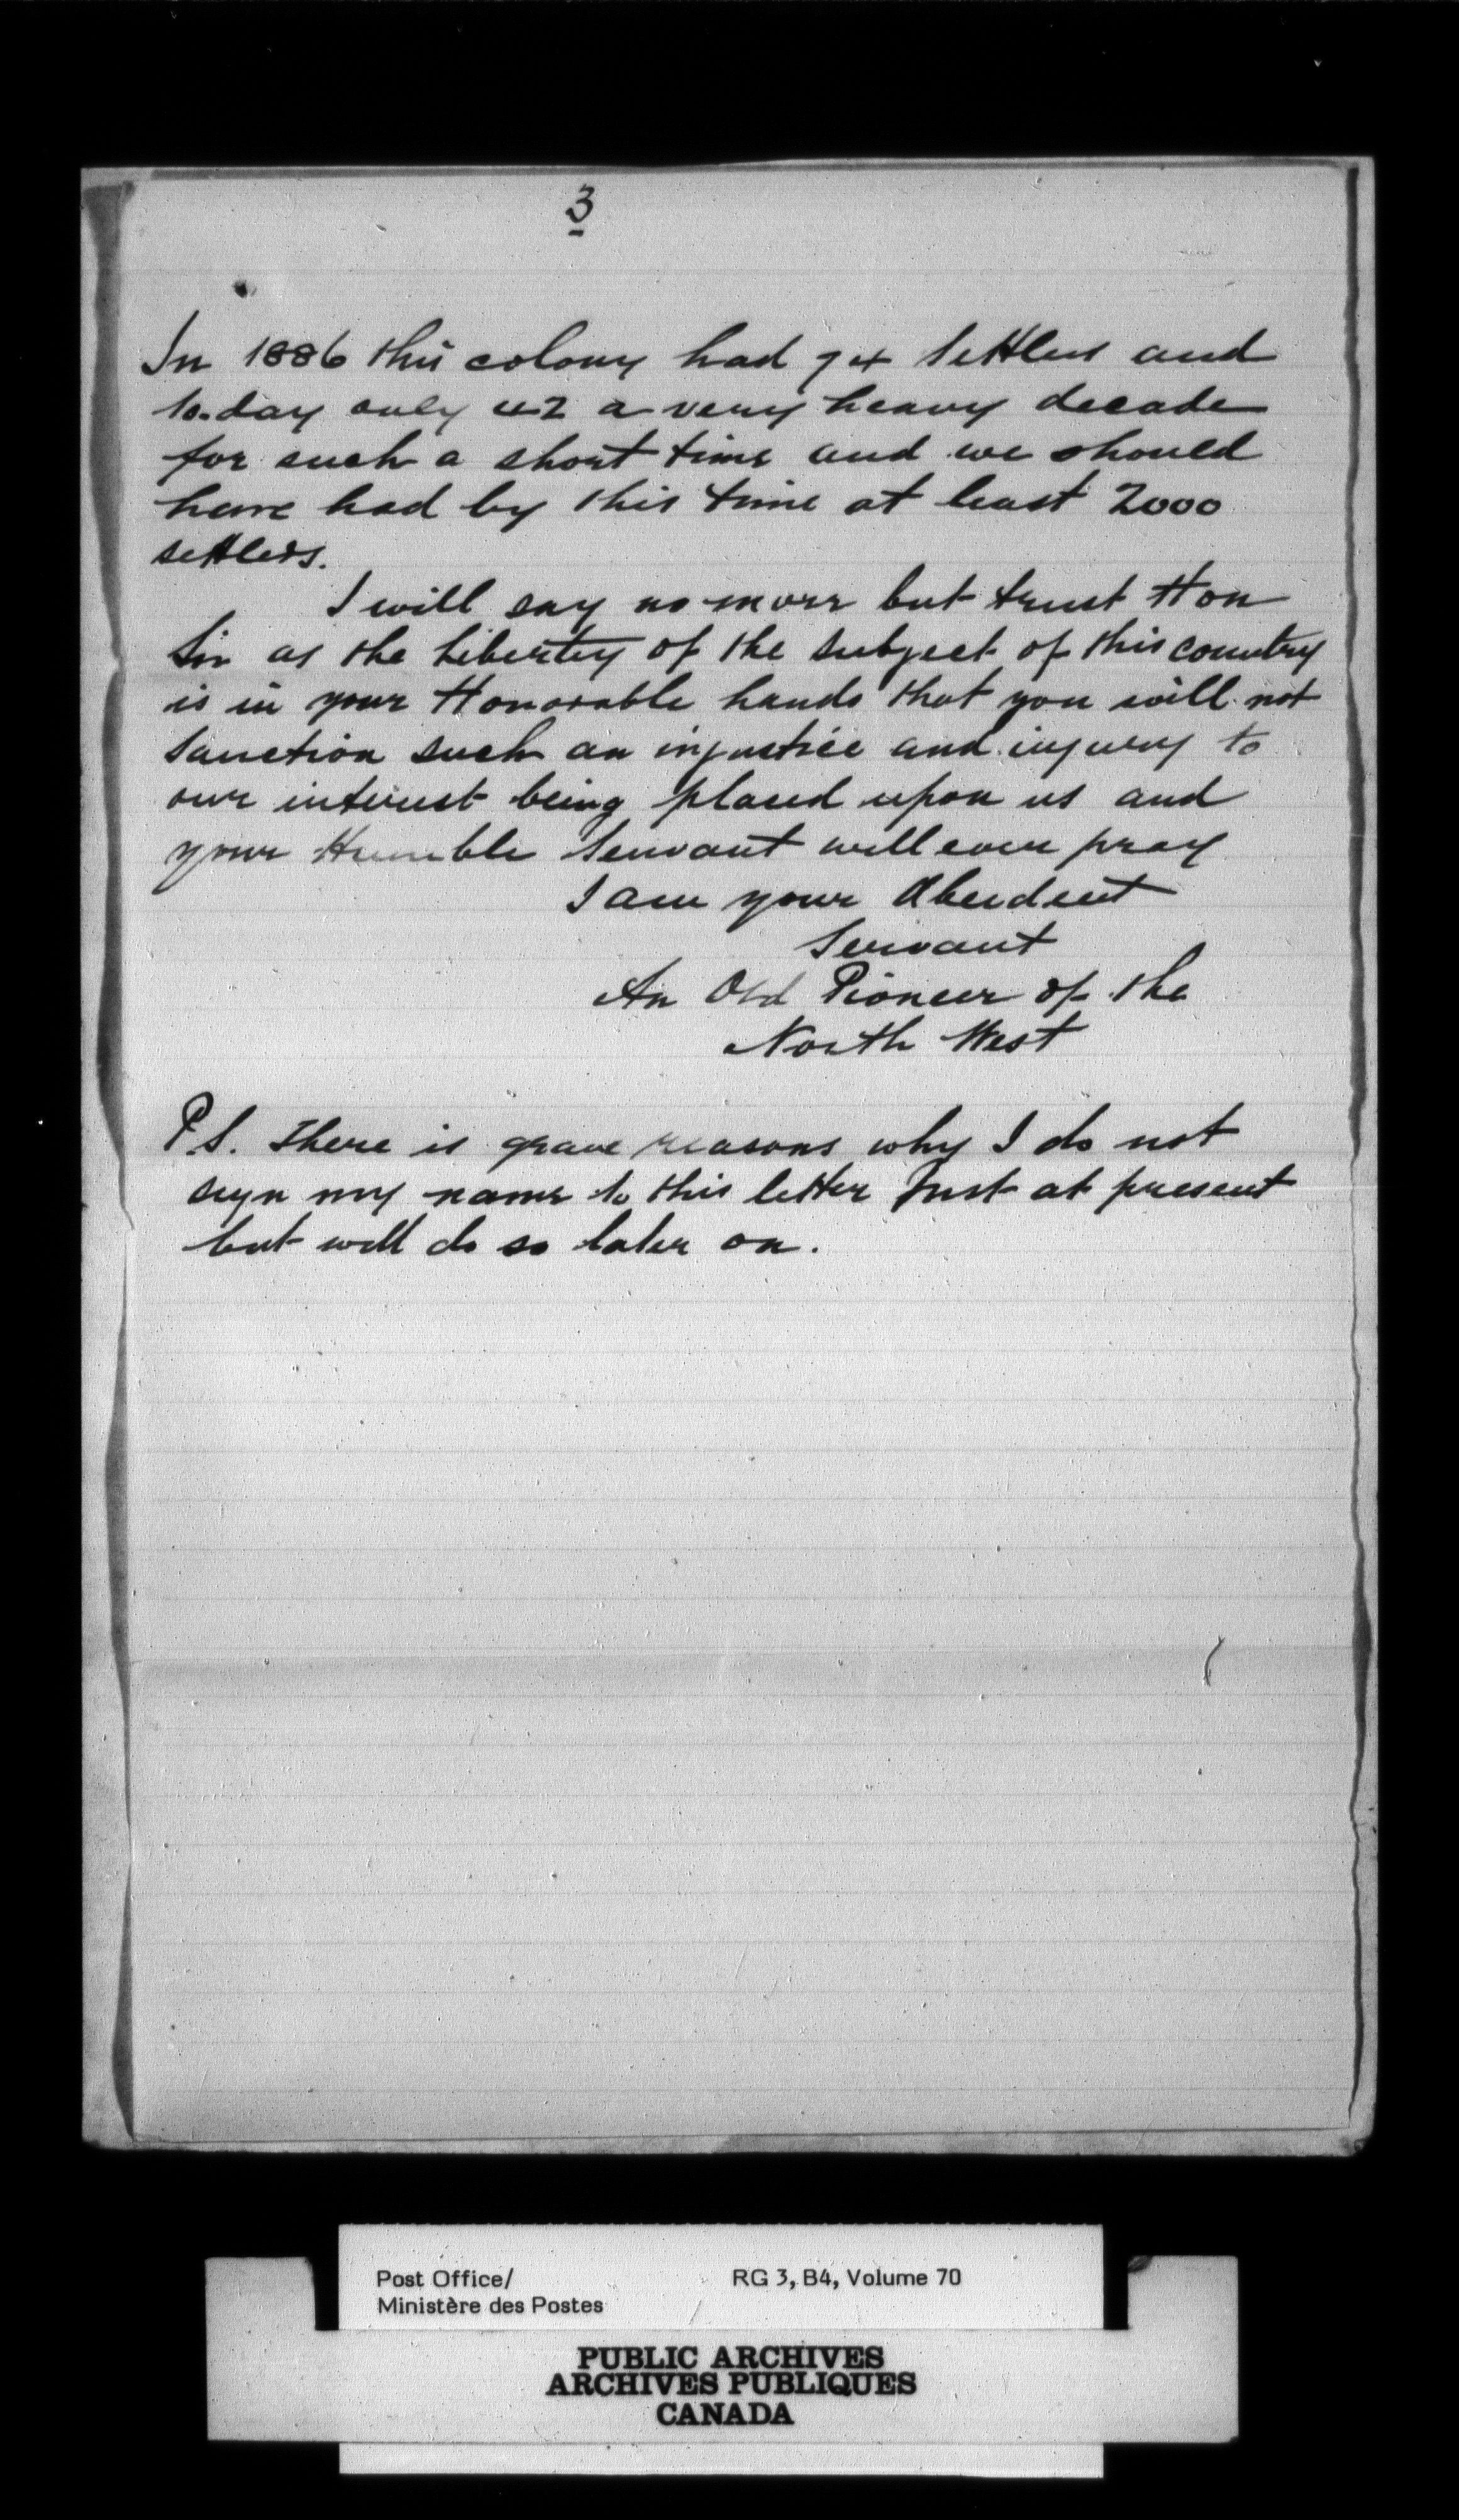 3
In 1886 this colony had 74 Settlers and
to-day only 42 a very heavy decade
for such a short time and we should
have had by this time at least 2000
settlers.
I will say no more but trust Hon
Sir as the Liberty of the subject of this country
is in your Honorable hands that you will not
sanction such an injustice and injury to
our interest being placed upon us and
your Humble Servant will ever pray
I am your Obendent
Servant
An Old Pioneer of the
North West
P.S. There is grave reasons why I do not
sign my name to this letter Just at present
but will do so later on.
Post Office/
Ministère des Postes
RG 3, B4, Volume 70
PUBLIC ARCHIVES
ARCHIVES PUBLIQUES
CANADA